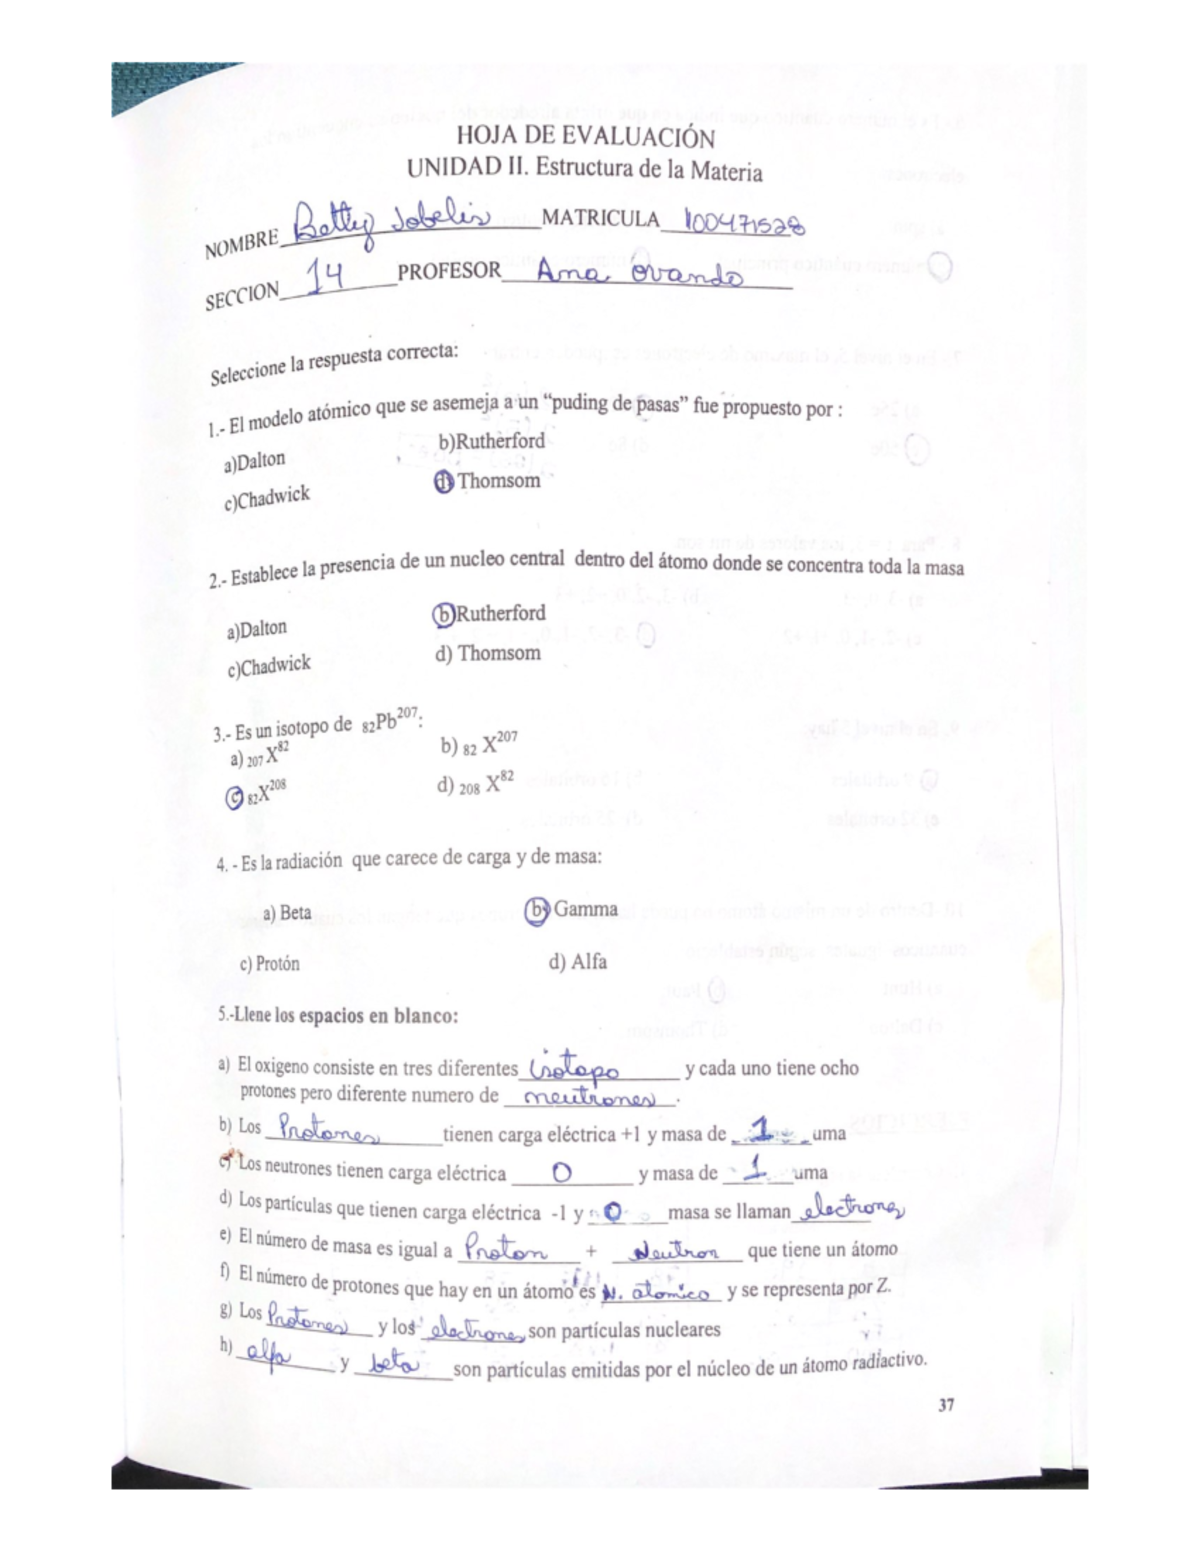 HOJA DE EVALUACIÓN
UNIDAD II. Estructura de la Materia
NOMBRE Betty Jobelis MATRICULA 100471528
SECCION 14 PROFESOR Ana Ovando
Seleccione la respuesta correcta:
1.- El modelo atómico que se asemeja a un “puding de pasas” fue propuesto por :
a)Dalton b)Rutherford
c)Chadwick d) Thomsom
2.- Establece la presencia de un nucleo central dentro del átomo donde se concentra toda la masa
a)Dalton b)Rutherford
c)Chadwick d) Thomsom
3.- Es un isotopo de ₈₂Pb²⁰⁷:
a) ₂₀₇X⁸² b) ₈₂ X²⁰⁷
c) ₈₂X²⁰⁸ d) ₂₀₈ X⁸²
4. - Es la radiación que carece de carga y de masa:
a) Beta b) Gamma
c) Protón d) Alfa
5.-Llene los espacios en blanco:
a) El oxigeno consiste en tres diferentes isotopo y cada uno tiene ocho
protones pero diferente numero de neutrones.
b) Los Protones tienen carga eléctrica +1 y masa de 1 uma
c) Los neutrones tienen carga eléctrica 0 y masa de 1 uma
d) Los partículas que tienen carga eléctrica -1 y 0 masa se llaman electrones
e) El número de masa es igual a Proton + Neutron que tiene un átomo
f) El número de protones que hay en un átomo es N. atomico y se representa por Z.
g) Los Protones y los electrones son partículas nucleares
h) alfa y beta son partículas emitidas por el núcleo de un átomo radiactivo.
37